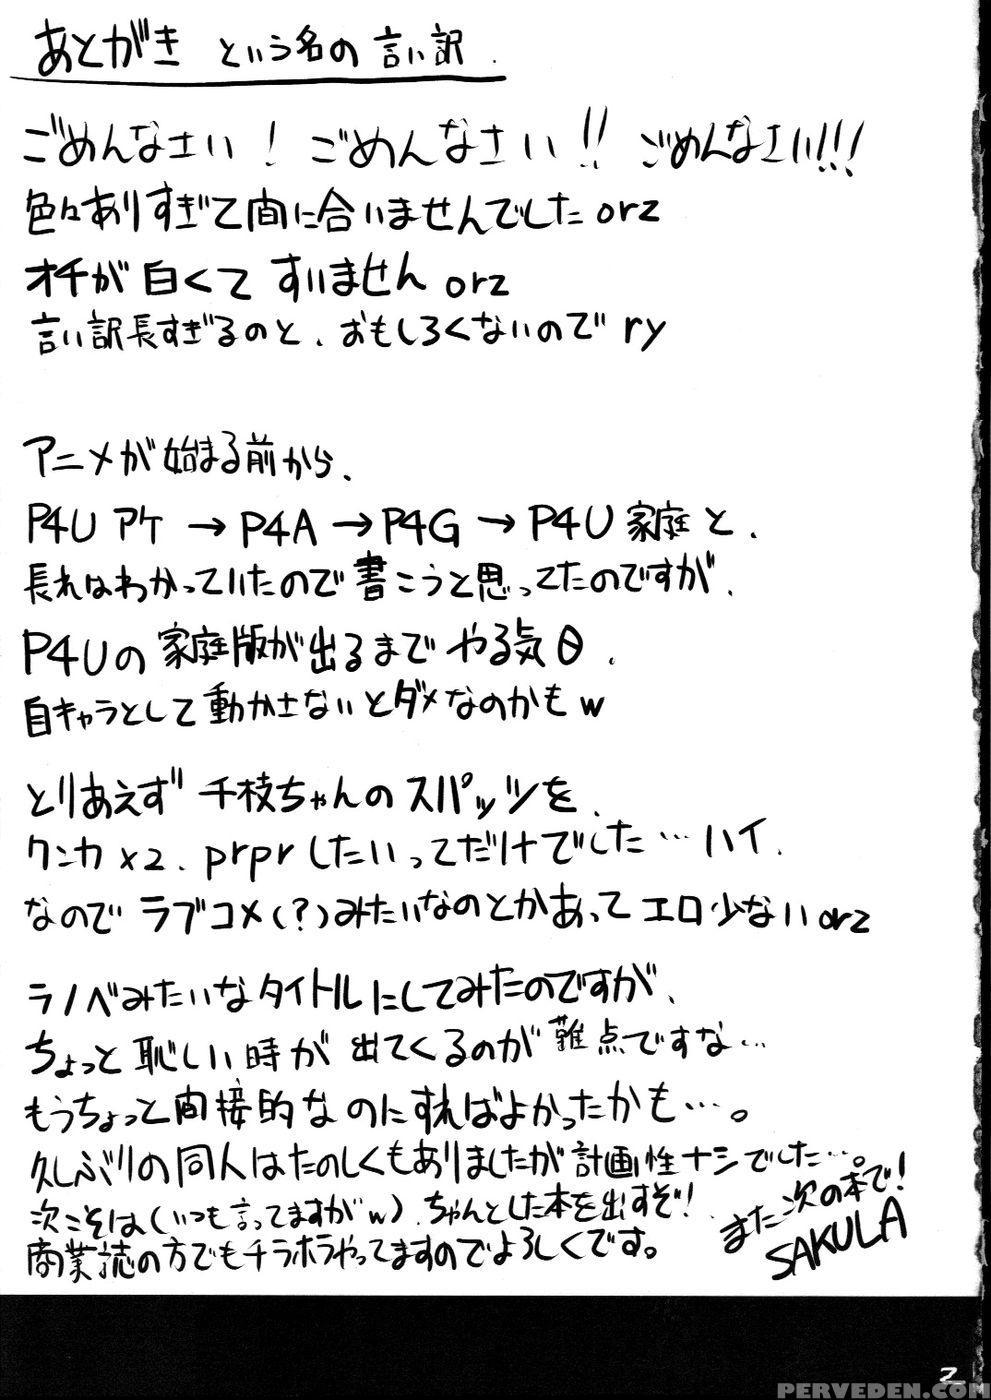 あとがき という名の言い訳.
ごめんなさい! ごめんなさい!! ごめんなさい!!!
色々ありすぎて間に合いませんでした orz
オチが白くて すいません orz
言い訳長すぎるのと、おもしろくないので ry
アニメが始まる前から、
P4U アケ → P4A → P4G → P4U 家庭 と、
長れはわかっていたので書こうと思ってたのですが、
P4Uの家庭版が出るまでやる気0、
自キャラとして動かさないとダメなのかもw
とりあえず 千枝ちゃんのスパッツを、
クンカ×2、prprしたいってだけでした…ハイ、
なのでラブコメ(?)みたいなのとかあってエロ少ないorz
ラノベみたいなタイトルにしてみたのですが、
ちょっと恥しい時が出てくるのが難点ですな…
もうちょっと間接的なのにすればよかったかも…。
久しぶりの同人はたのしくもありましたが計画性ナシでした…。
次こそは(いつも言ってますがw)、ちゃんとした本を出すぞ!
商業誌の方でもチラホラやってますのでよろしくです。
また次の本で!
SAKULA
2
PERVEDEN.COM